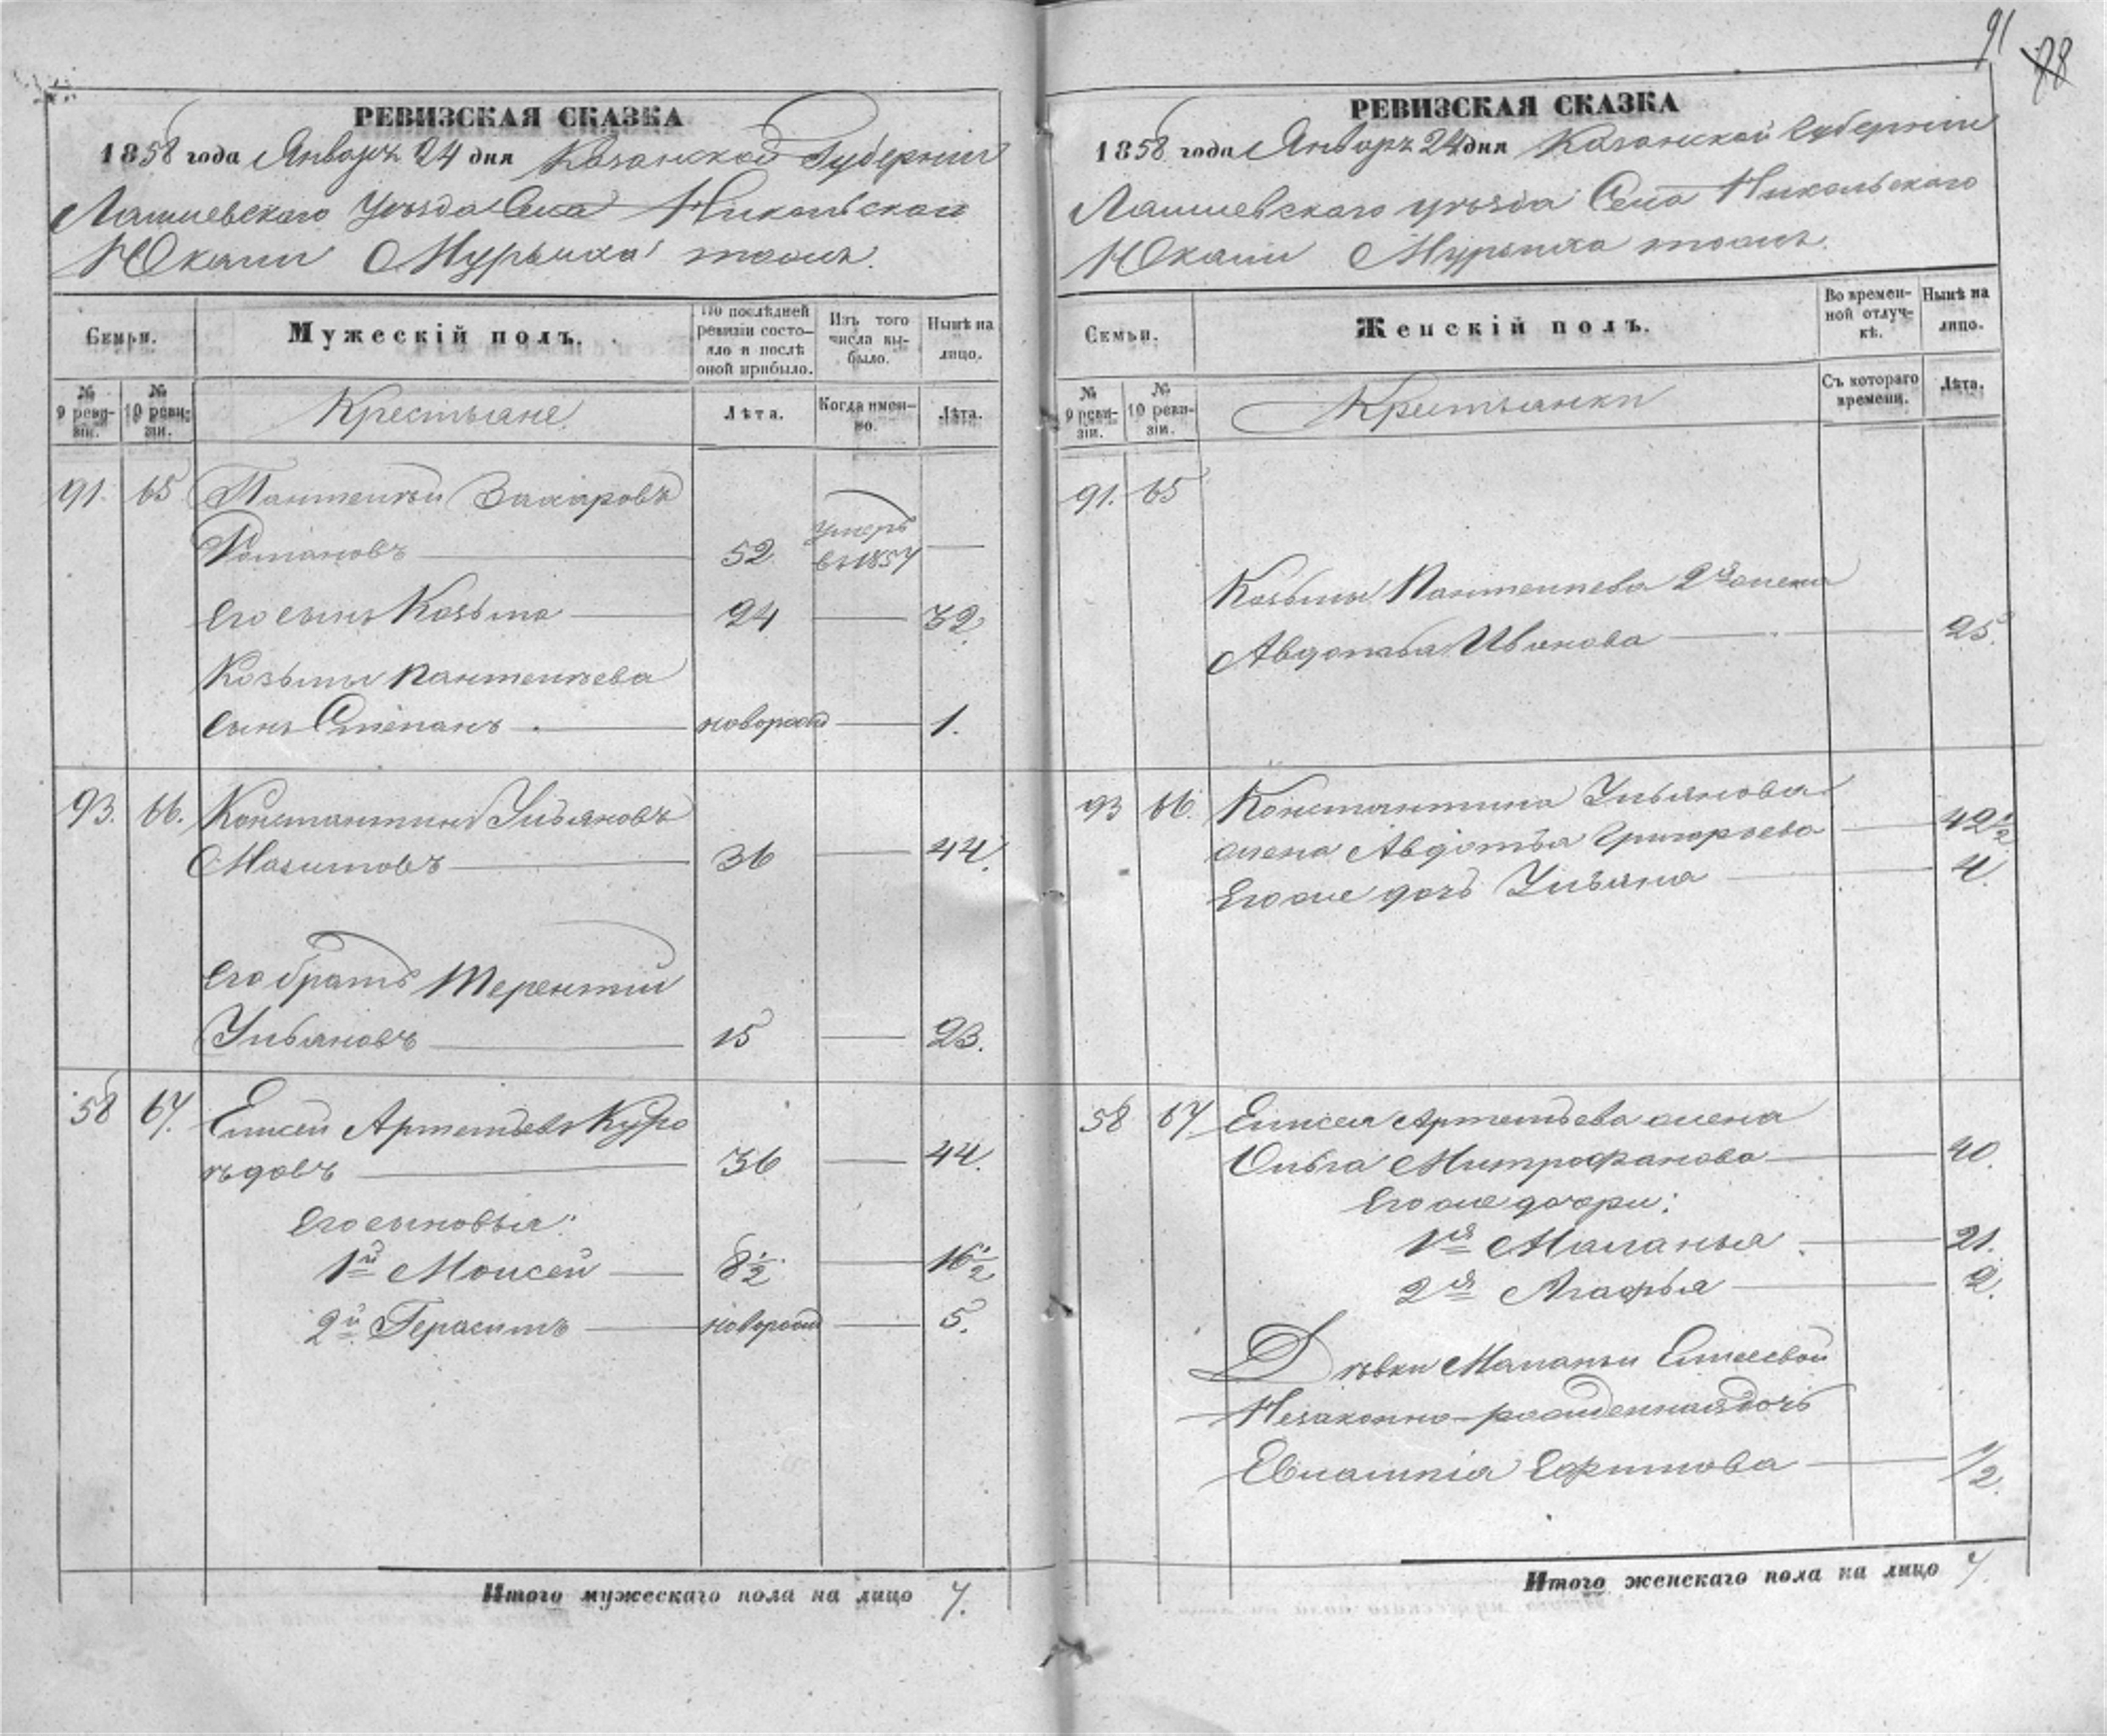 91
88
РЕВИЗСКАЯ СКАЗКА
1858 года Января 24 дня Казанской Губернии
Лаишевскаго Уѣзда Села Никольскаго
Юкачи Мурзиха тожъ.
Семьи.
Мужескій полъ.
По послѣдней ревизіи состояло и послѣ оной прибыло.
Изъ того числа выбыло.
Нынѣ на лицо.
№ 9 ревизіи.
№ 10 ревизіи.
Крестьяне.
Лѣта.
Когда именно.
Лѣта.
91. 65 Пантелѣй Захаровъ
Романовъ 52 Умеръ въ 1857
Его сынъ Козьма 24 32.
Козьмы Пантелѣева
сынъ Степанъ новорожд 1.
93. 66. Константинъ Ульяновъ
36 44.
Его братъ Терентій
Ульяновъ 15 23.
58 67. Елисей Артемьевъ Куро
ѣдовъ 36 44.
Его сыновья:
1й Моисей 8 1/2 16 1/2
2й Герасимъ новорожд 5.
Итого мужескаго пола на лицо 7.
РЕВИЗСКАЯ СКАЗКА
1858 года Января 24 дня Казанской Губерніи
Лаишевскаго уѣзда Села Никольскаго
Юкачи Мурзиха тожъ.
Семьи.
Женскій полъ.
Во временной отлучкѣ.
Нынѣ на лицо.
№ 9 ревизіи.
№ 10 ревизіи.
Крестьянки
Съ котораго времени.
Лѣта.
91. 65
Козьмы Пантелѣева 2я жена
Авдотья Иванова 25.
93 66. Константина Ульянова
жена Авдотья Григорьева 42 1/2
Его же дочь Ульяна 4.
58 67 Елисея Артемьева жена
Ольга Митрофанова 40.
Его же дочери:
1я Маланья 21.
2я Агафья 2.
Дѣвки Маланьи Елисеевой
Незаконно-рожденная дочь
Евлампія Ефимова 1/2.
Итого женскаго пола на лицо 7.